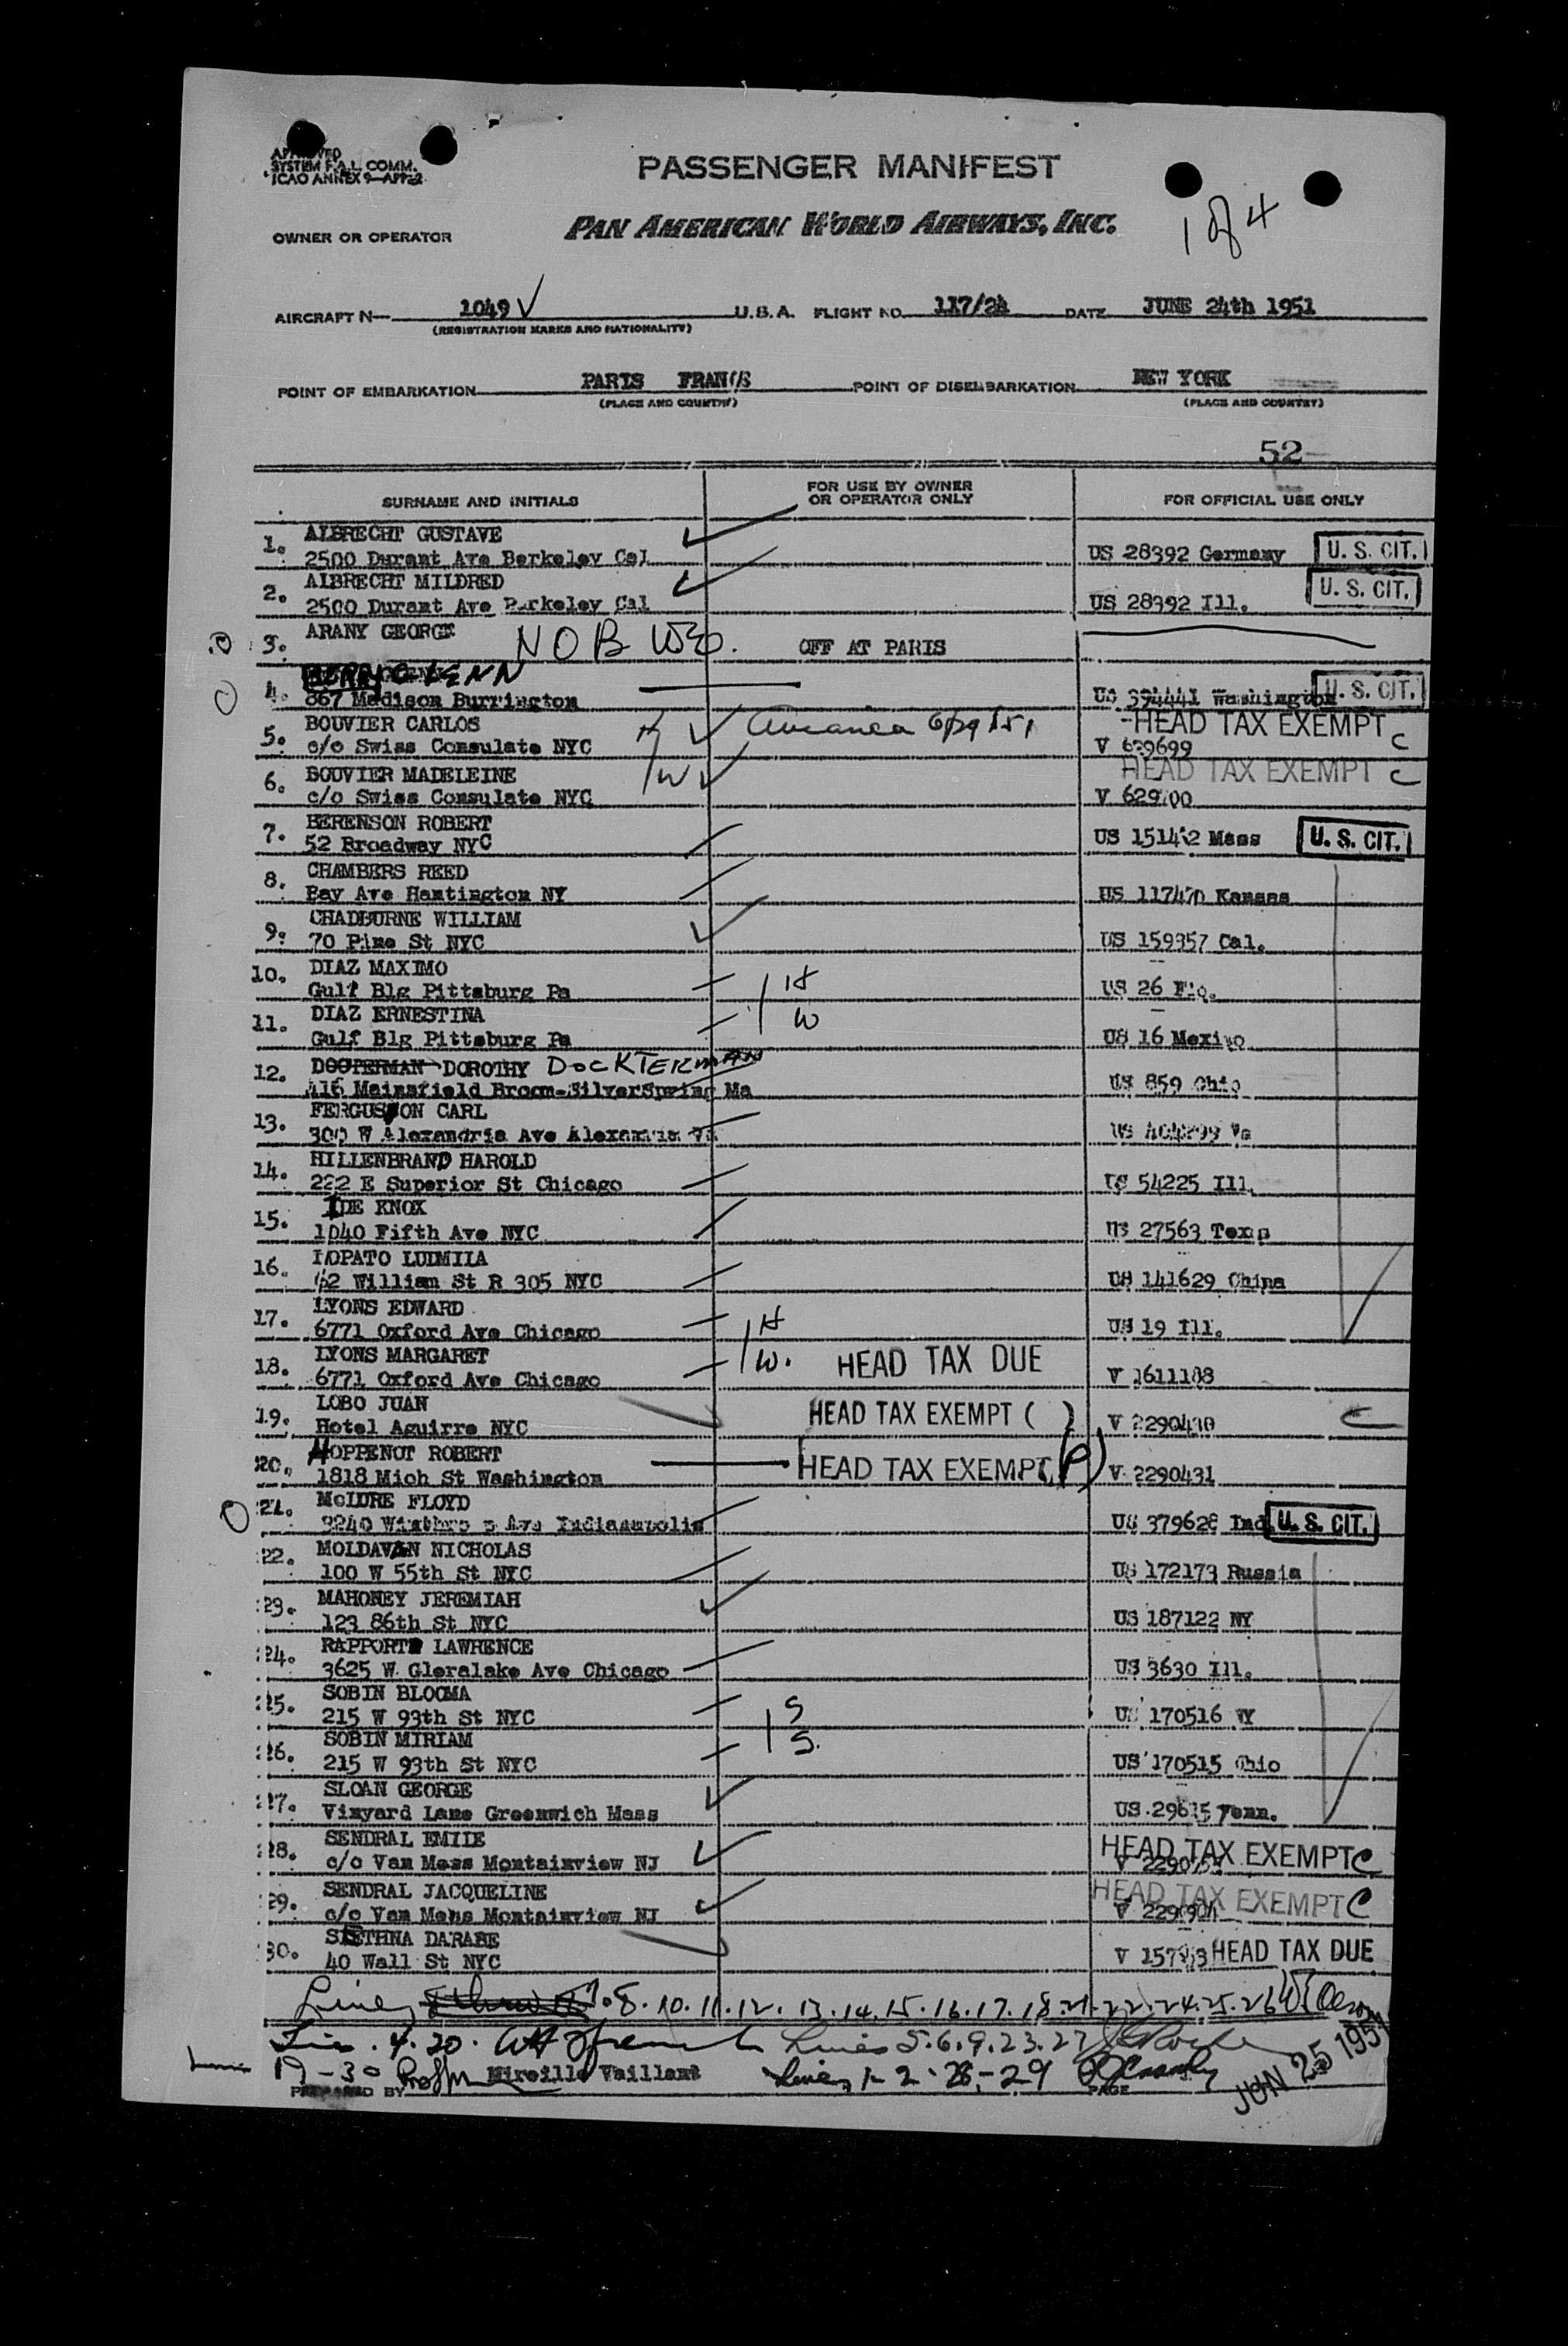 APPROVED
SYSTEM F.A.L. COMM.
ICAO ANNEX 9—APP.
PASSENGER MANIFEST
1 of 4
OWNER OR OPERATOR PAN AMERICAN WORLD AIRWAYS, INC.
AIRCRAFT N— 1049 U.S.A. FLIGHT NO. 117/24 DATE JUNE 24th 1951
(REGISTRATION MARKS AND NATIONALITY)
POINT OF EMBARKATION PARIS FRANCE POINT OF DISEMBARKATION NEW YORK
(PLACE AND COUNTRY) (PLACE AND COUNTRY)
52
SURNAME AND INITIALS FOR USE BY OWNER OR OPERATOR ONLY FOR OFFICIAL USE ONLY
1. ALBRECHT GUSTAVE
2500 Durant Ave Berkeley Cal US 28392 Germany U. S. CIT.
2. ALBRECHT MILDRED
2500 Durant Ave Berkeley Cal US 28392 Ill. U. S. CIT.
3. ARANY GEORGE NOB OFF AT PARIS
4. GLENN
867 Madison Burrington US 394441 Washington U. S. CIT.
5. BOUVIER CARLOS HEAD TAX EXEMPT C
c/o Swiss Consulate NYC V 629699
6. BOUVIER MADELEINE W HEAD TAX EXEMPT C
c/o Swiss Consulate NYC V 629700
7. BERENSON ROBERT
52 Broadway NYC US 151452 Mass U. S. CIT.
8. CHAMBERS REED
Bay Ave Hantington NY US 117470 Kansas
9. CHADBURNE WILLIAM
70 Pine St NYC US 159357 Cal.
10. DIAZ MAXIMO H
Gulf Blg Pittsburg Pa US 26
11. DIAZ ERNESTINA W
Gulf Blg Pittsburg Pa US 16 Mexico
12. DOROTHY DOCKTERMAN
416 Mainsfield Broom-SilverSpring Ma US 859 Ohio
13. FERGUSON CARL
300 W Alexandria Ave Alexandria Va US Va
14. HILLENBRAND HAROLD
222 E Superior St Chicago US 54225 Ill.
15. IDE KNOX
1040 Fifth Ave NYC US 27563 Texas
16. LOPATO LUDMILA
62 William St R 305 NYC US 141629 China
17. LYONS EDWARD H
6771 Oxford Ave Chicago US 19 Ill.
18. LYONS MARGARET W. HEAD TAX DUE
6771 Oxford Ave Chicago V 1611188
19. LOBO JUAN HEAD TAX EXEMPT ( )
Hotel Aguirre NYC V 2290430 C
20. HOPPENOT ROBERT HEAD TAX EXEMPT (P)
1818 Mich St Washington V 2290431
21. McLURE FLOYD
Ave Indianapolis US 379628 Ind U. S. CIT.
22. MOLDAVAN NICHOLAS
100 W 55th St NYC US 172173 Russia
23. MAHONEY JEREMIAH
123 86th St NYC US 187122 NY
24. RAPPORT LAWRENCE
3625 W Gleralake Ave Chicago US 3630 Ill.
25. SOBIN BLOOMA S
215 W 93th St NYC US 170516 NY
26. SOBIN MIRIAM S.
215 W 93th St NYC US 170515 Ohio
27. SLOAN GEORGE
Vinyard Lane Greenwich Mass US 29615 Tenn.
28. SENDRAL EMILE HEAD TAX EXEMPT C
c/o Van Mess Montainview NJ V
29. SENDRAL JACQUELINE HEAD TAX EXEMPT C
c/o Van Mens Montainview NJ V
30. SETHNA DARABE
40 Wall St NYC V HEAD TAX DUE
Lines 7. 8. 10. 11. 12. 13. 14. 15. 16. 17. 18. 21. 22. 24. 25. 26
4. 20. Lines 5. 6. 9. 23. 27
19 - 30 Mireille Vaillant Lines 1- 2- 28.- 29
PREPARED BY PAGE
JUN 25 1951